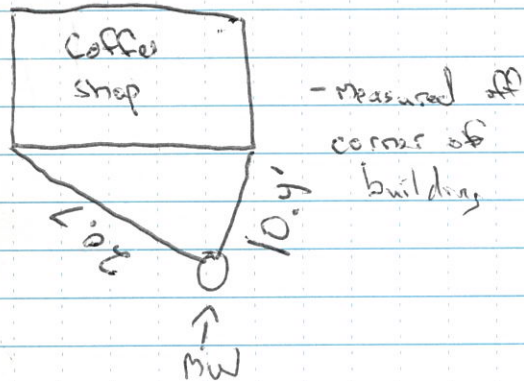 Coffee
shop
- Measured off
corner of
building
20.7
10.4'
MW